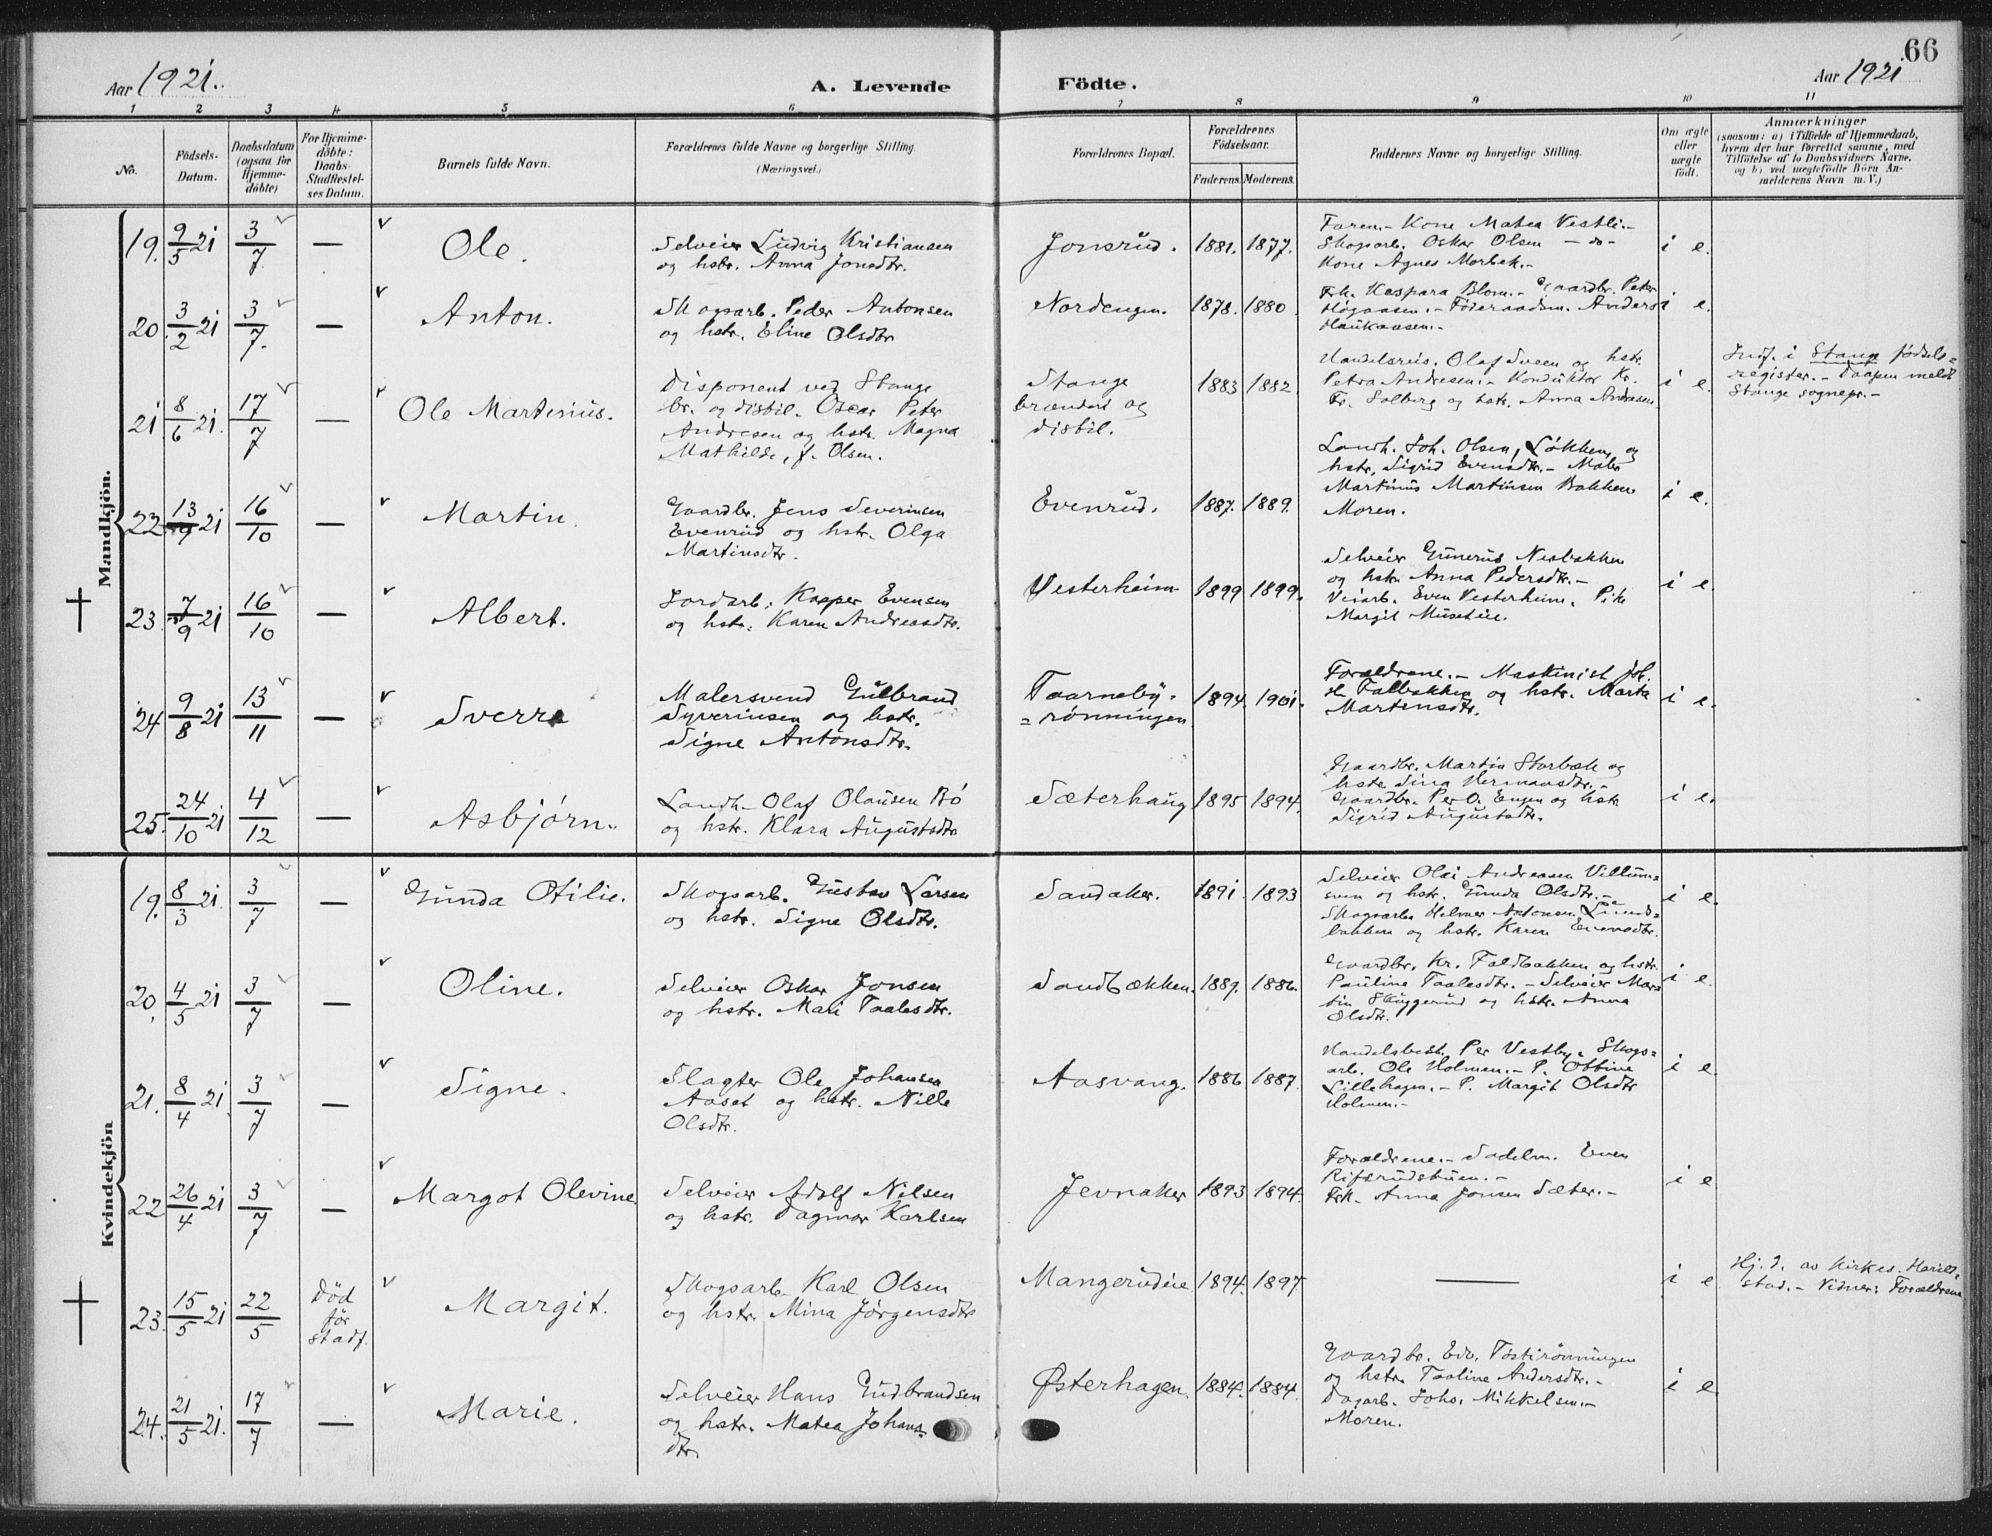 66
Aar 1921.
A. Levende
Födte.
Aar 1921
1 2 3 4 5 6 7 8 9 10 11
No.
Födsels-
Datum.
Daabsdatum
(ogsaa for
Hjemme-
döbte)
For Hjemme-
döbte:
Daabs-
Stadfæstel-
ses Datum.
Barnets fulde Navn.
Forældrenes fulde Navne og borgerlige Stilling.
(Næringsvei.)
Forældrenes Bopæl.
Forældrenes
Födselsaar.
Faderens. Moderens.
Faddernes Navne og borgerlige Stilling.
Om ægte
eller
uægte
födt.
Anmærkninger
(saasom: a) i Tilfælde af Hjemmedaab,
hvem der har forrettet samme, med
Tilföielse af to Daabsvidners Navne.
og b) ved uægtefödte Börn An-
melderens Navn m. V.)
Mandkjön.
19. 9/5 21 3/7 — Ole.
Selveier Ludvig Kristiansen
og hstr. Anna Jonsdtr.
Jonsrud. 1881. 1877.
Faren.- Kone Matea Vestli.-
Skogsarb. Oskar Olsen - do -
Kone Agnes Morbek.-
i e.
20. 3/2 21 3/7. — Anton.
Skogsarb. Peder Antonsen
og hstr. Eline Olsdtr
Nordengen. 1878. 1880.
Frk. Kaspara Blom.- Gaardbr. Peter
Høgaasen.- Føderaadsm. Anders
Haukaasen.-
i e.
21. 8/6 21. 17/7 — Ole Martinius.
Disponent ved Stange
br. og distil. Oscar Peter
Andresen og hstr. Magna
Mathilde, f. Olsen.
Stange
brænderi og
distil.
1883 1882.
Handelsreis. Olaf Sveen og hstr.
Petra Andresen.- Konduktør Kr.
Fr. Solberg og hstr. Anna Andresen.
i e.
Indf. i Stange fødsels=
register.- Daapen meldt
Stange sognepr.-
22. 13/9 21 16/10 — Martin.
Gaardbr. Jens Severinsen
Evenrud og hstr. Olga
Martinsdtr.
Evenrud. 1887. 1889.
Landh. Joh. Olsen, Løkken, og
hstr. Sigrid Evensdtr.- Maler
Martinus Martinsen Bakken
Moren.
i e.
23. 7/9 21 16/10 — Albert.
Jordarb. Kasper Evensen
og hstr. Karen Andreasdtr.
Vesterheim 1899 1899.
Selveier Gunerius Nesbakken
og hstr. Anna Pedersdtr.-
Veiarb. Even Vesterheim. Pike
Margit Museteie.
i e.
24. 9/8 21 13/11 — Sverre
Malersvend Gulbrand
Syverinsen og hstr.
Signe Antonsdtr.
Taarneby-
=rønningen
1894. 1901.
Forældrene.- Maskinist Joh.
H. Falbakken og hstr. Marta
Martensdtr.
i e.
25. 24/10 21 4/12 — Asbjørn.
Landh. Olaf Olausen Bø
og hstr. Klara Augustsdtr
Sæterhaug 1895 1894.
Gaardbr. Martin Storbæk og
hstr. Sina Hermansdtr.-
Gaardbr. Per O. Engen og hstr
Sigrid Augustsdtr.
i e.
Kvindekjön
19. 8/3 21. 3/7 — Gunda Otilie.
Skogsarb. Gustav Larsen
og hstr. Signe Olsdtr.
Sandaker. 1891. 1893
Selveier Olai Andreasen Villum=
sven og hstr. Gunda Olsdtr.-
Skogsarb. Helmer Antonsen Lunds=
bakken og hstr. Karen Evensdtr.
i e.
20. 4/5 21 3/7 — Oline.
Selveier Oskar Jonsen
og hstr. Mari Taalesdtr.
Sandbækken. 1889. 1886.
Gaardbr. Kr. Faldbakken og hstr.
Pauline Taalesdtr.- Selveier Mar=
tin Skyggerud og hstr. Anna
Olsdtr.
i e.
21. 8/4 21. 3/7 — Signe.
Slagter Ole Johansen
Aaset og hstr. Nille
Olsdtr.
Aasvang. 1886 1887.
Handelsbest. Per Vestby. Skogs=
arb. Ole Holmen.- P. Ottine
Lillehagen.- P. Margit Olsdtr
Holmen.-
i e.
22. 26/4 21 3/7 — Margot Olevine.
Selveier Adolf Nilsen
og hstr. Dagmar Karlsen
Jevnaker 1893 1894.
Forældrene.- Sadelm. Even
Frk. Anna Jonsen Sæter.-
i e.
23. 15/5 21 22/5 Død
før
stadf.
Margit.
Skogsarb. Karl Olsen
og hstr. Mina Jørgensdtr
Mangerudeie 1894. 1897
—
i e
Hj. d. av Kirkes. Harild=
stad.- Vidner: Forældrene
24. 21/5 21. 17/7 — Marie.
Selveier Hans Gudbrandsen
og hstr. Matea Johans
dtr.
Østerhagen. 1884. 1884.
Gaardbr. Edv. Tostirønningen
og hstr. Taaline Andersdtr.-
Dagarb. Johs. Mikkelsen.-
Moren.
i e.